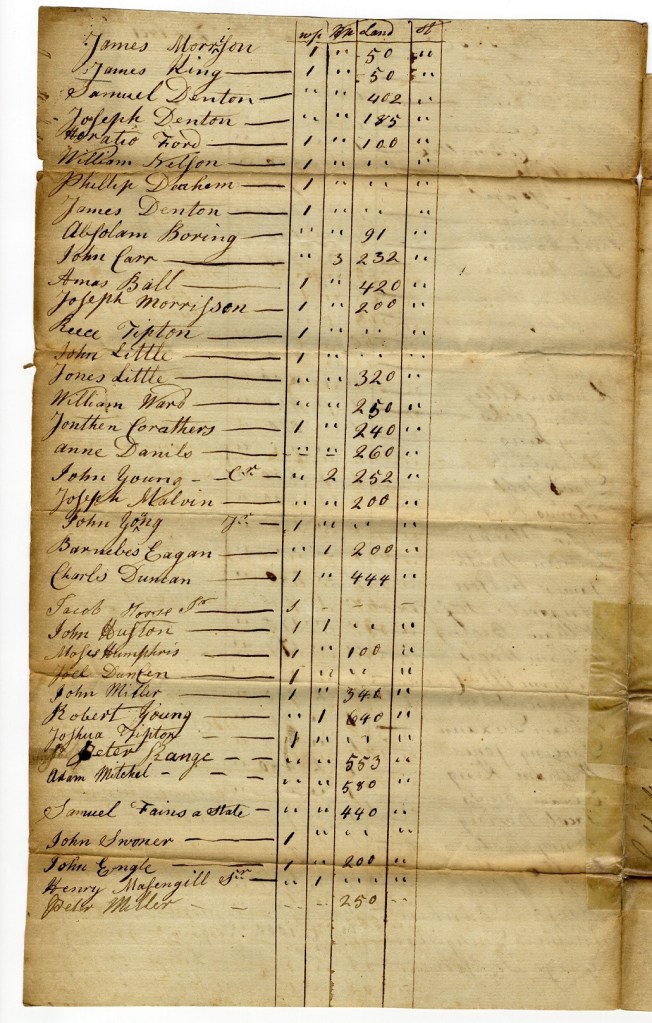 wp Bk Land St
James Morrison 1 " 50 "
James King 1 " 50 "
Samuel Denton " " 402 "
Joseph Denton " " 185 "
Horatio Ford 1 " 100 "
William Nelson 1 " " "
Phillip 1 " " "
James Denton 1 " " "
Absolam Boring " " 91 "
John Carr " 3 232 "
Amas Ball 1 " 420 "
Joseph Morrisson 1 " 200 "
Reece Tipton 1 " " "
John Little 1 " " "
Jones Little " " 320 "
William Ward " " 250 "
Jonthen Corathers 1 " 240 "
anne Danils - - 260 "
John Young Cr. " 2 252 "
Joseph Malvin " " 200 "
John Yong Jr. 1 " " "
Barnebes Eagan " 1 200 "
Charls Duncan 1 " 444 "
Jacob Sr 1 - - -
John Huston 1 1 " "
Moses Humphris 1 " 100 "
Joel Duncen 1 " " "
John Miller 1 " 340 "
Robert Young " 1 640 "
Joshua Tipton 1 " " "
Peter Range " " 553 "
Adam Mitchel " " 580 "
Samuel Fains a State " " 440 "
John Swoner 1 " " "
John Engle 1 " 200 "
Henry Masengill Sr. " 1 " "
Peter Miller - - 250 -